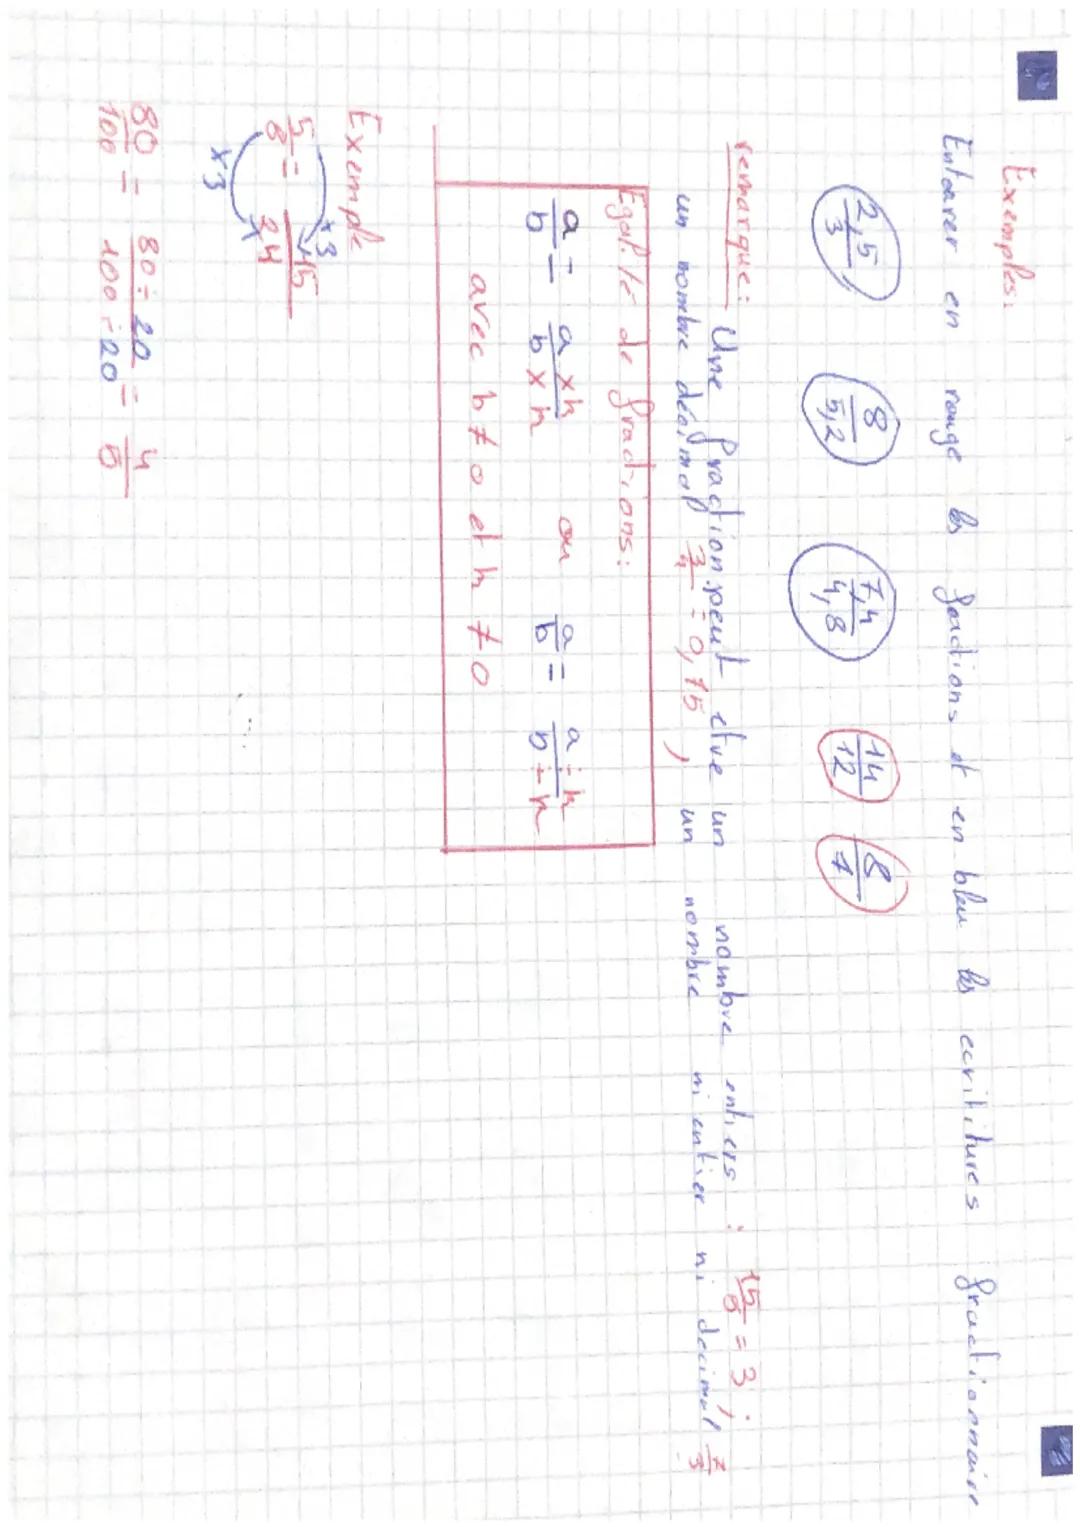 Exemples:
Entourer en rouge les fractions et en bleu les ecrititures fractionnaire
2,5/3 8/5,2 7,4/4,8 14/12 8/1
remarque: Une fraction peut etre un nombre entiers : 15/5 = 3 ;
un nombre décimal 3/4 = 0,75 , un nombre ni entier ni decimal 7/3
Egalité de fractions:
a/b = a×k/b×k ou a/b = a÷k/b÷k
avec b≠0 et k≠0
Exemple
×3
5/8 = 15/24
×3
80/100 = 80÷20/100÷20 = 4/5